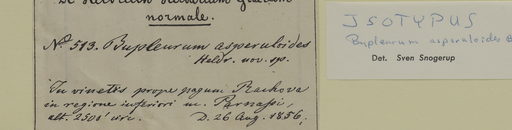 De Heldreich Herbarium Graecum
normale.
No 513. Bupleurum asperuloides
Heldr. nov. sp.
In vinetis prope pagum Rachova
in regione inferiori m. Parnassi,
alt. 2500' circ. D. 26 Aug. 1856.
ISOTYPUS
Bupleurum asperuloides
Det. Sven Snogerup